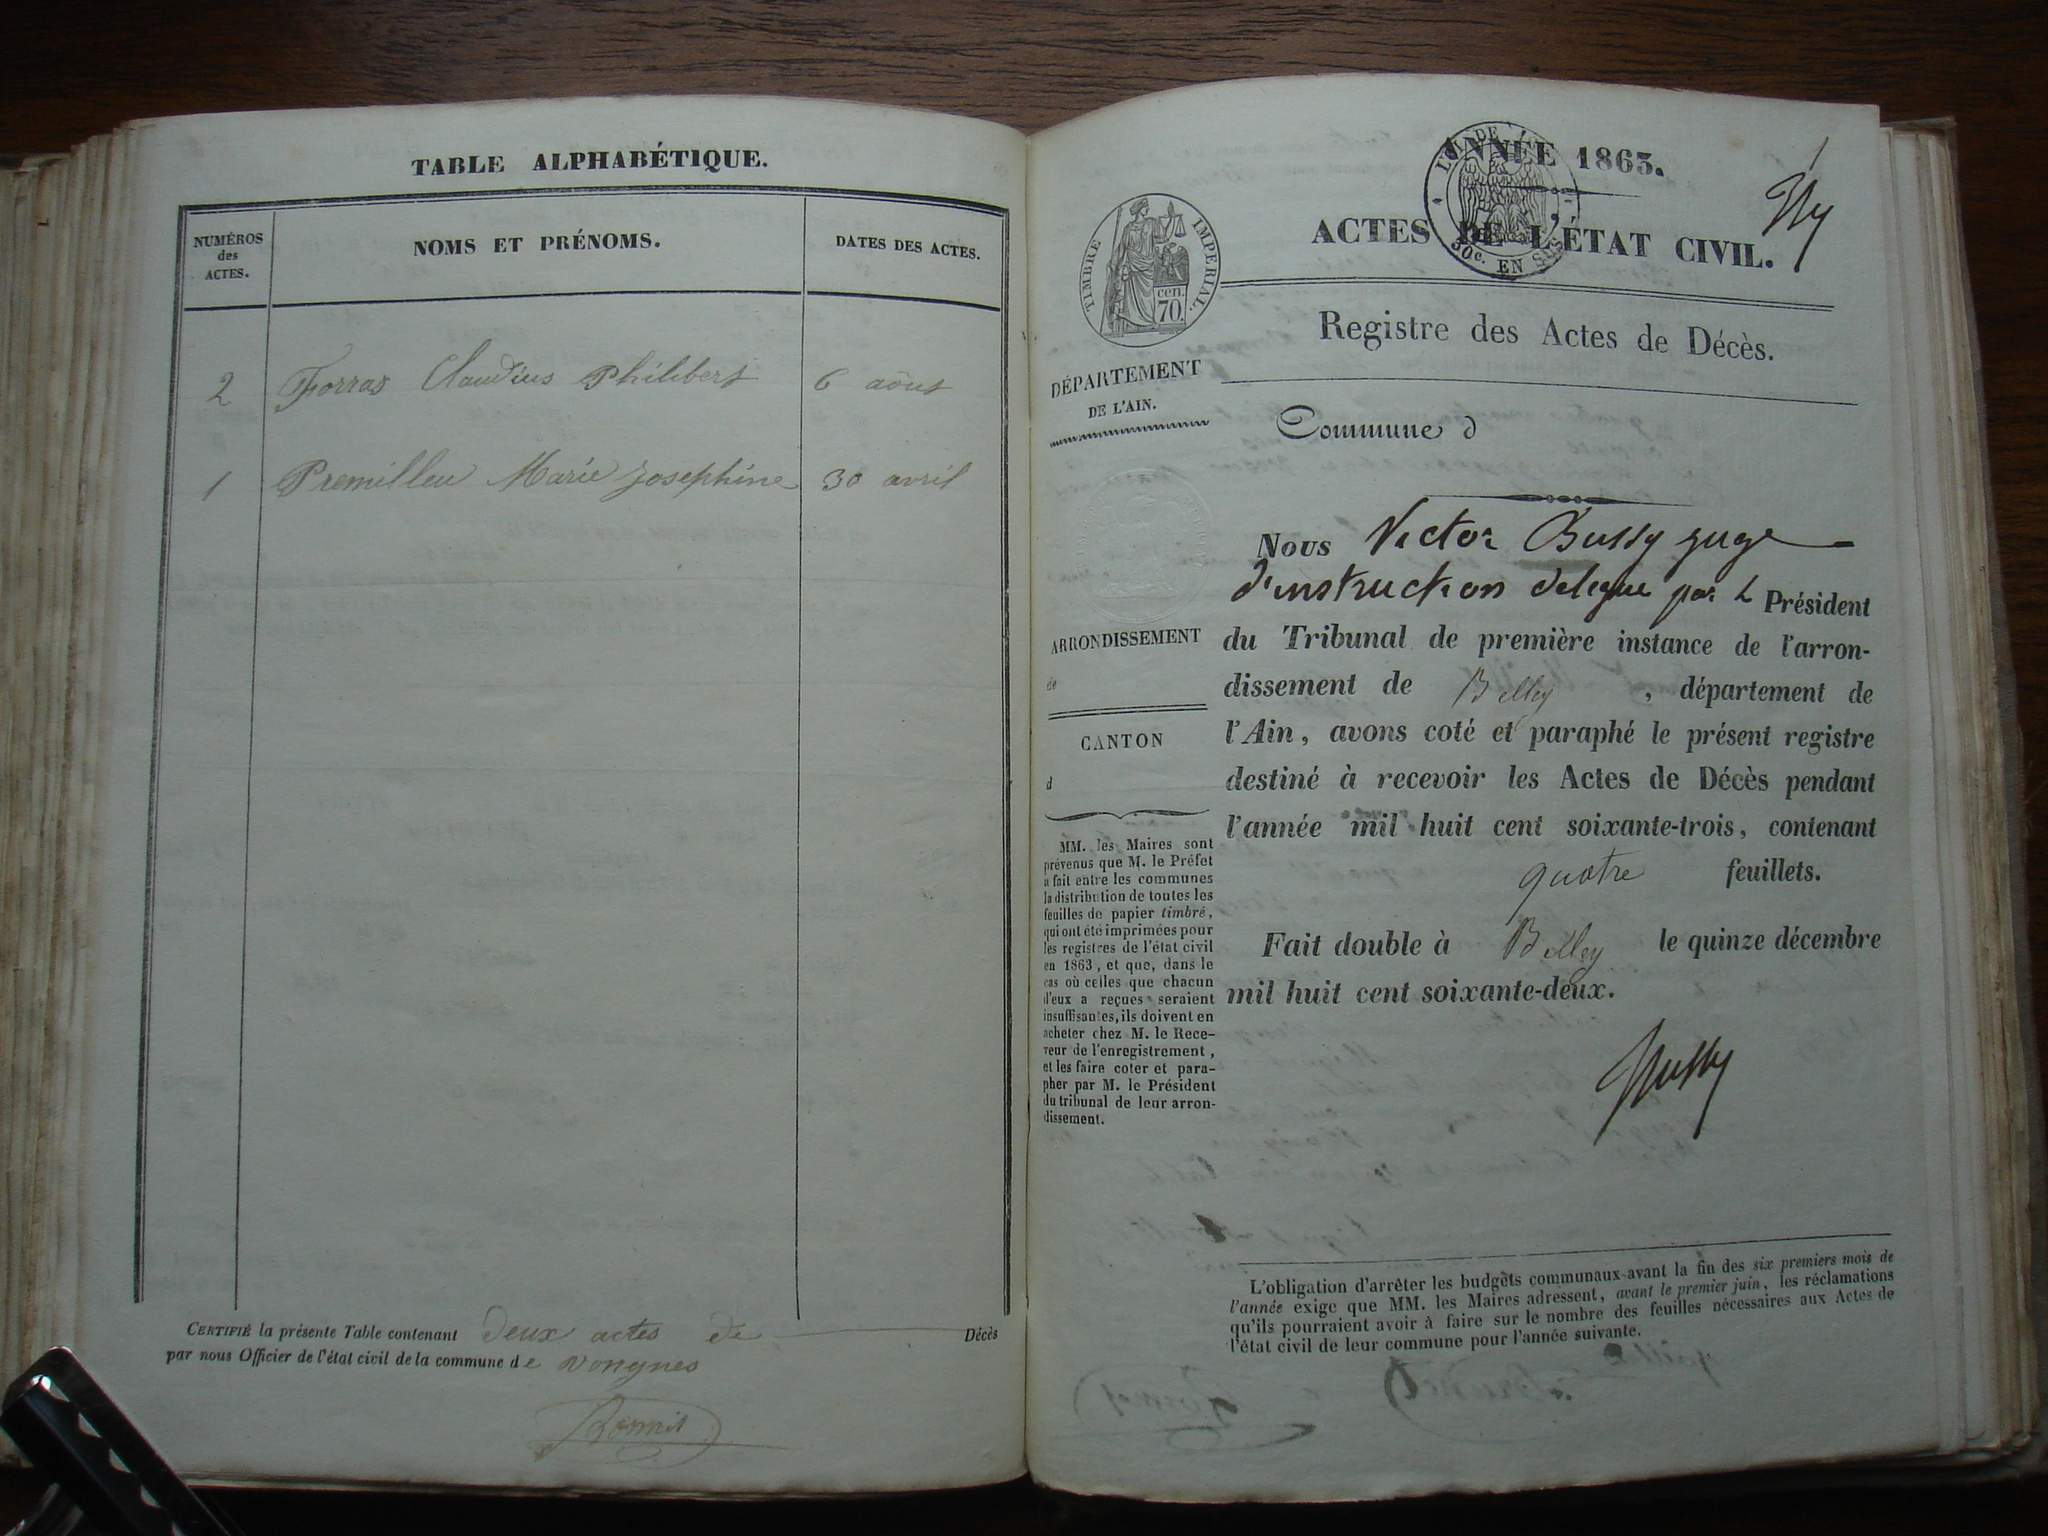 TABLE ALPHABÉTIQUE.
NUMÉROS
des
ACTES.
NOMS ET PRÉNOMS.
DATES DES ACTES.
2 Forras Claudius Philibert 6 aôut
1 Premilleu Marie Josephine 30 avril
CERTIFIÉ la présente Table contenant deux actes de Décès
par nous Officier de l'état civil de la commune de Vongnes
ANNÉE 1863.
ACTES DE L'ÉTAT CIVIL.
30c. EN SUS
TIMBRE IMPERIAL.
cen.
70.
Registre des Actes de Décès.
DÉPARTEMENT
DE L'AIN.
Commune d
Nous Victor Bussy juge
d'instruction délégué par le Président
du Tribunal de première instance de l'arron-
dissement de Belley, département de
l'Ain, avons coté et paraphé le présent registre
destiné à recevoir les Actes de Décès pendant
l'année mil huit cent soixante-trois, contenant
quatre feuillets.
Fait double à Belley le quinze décembre
mil huit cent soixante-deux.
Bussy
ARRONDISSEMENT
de
CANTON
d
MM. les Maires sont
prévenus que M. le Préfet
a fait entre les communes
la distribution de toutes les
feuilles de papier timbré,
qui ont été imprimées pour
les registres de l'état civil
en 1863, et que, dans le
cas où celles que chacun
d'eux a reçues seraient
insuffisantes, ils doivent en
acheter chez M. le Rece-
veur de l'enregistrement,
et les faire coter et para-
pher par M. le Président
du tribunal de leur arron-
dissement.
L'obligation d'arrêter les budgets communaux avant la fin des six premiers mois de
l'année exige que MM. les Maires adressent, avant le premier juin, les réclamations
qu'ils pourraient avoir à faire sur le nombre des feuilles nécessaires aux Actes de
l'état civil de leur commune pour l'année suivante.